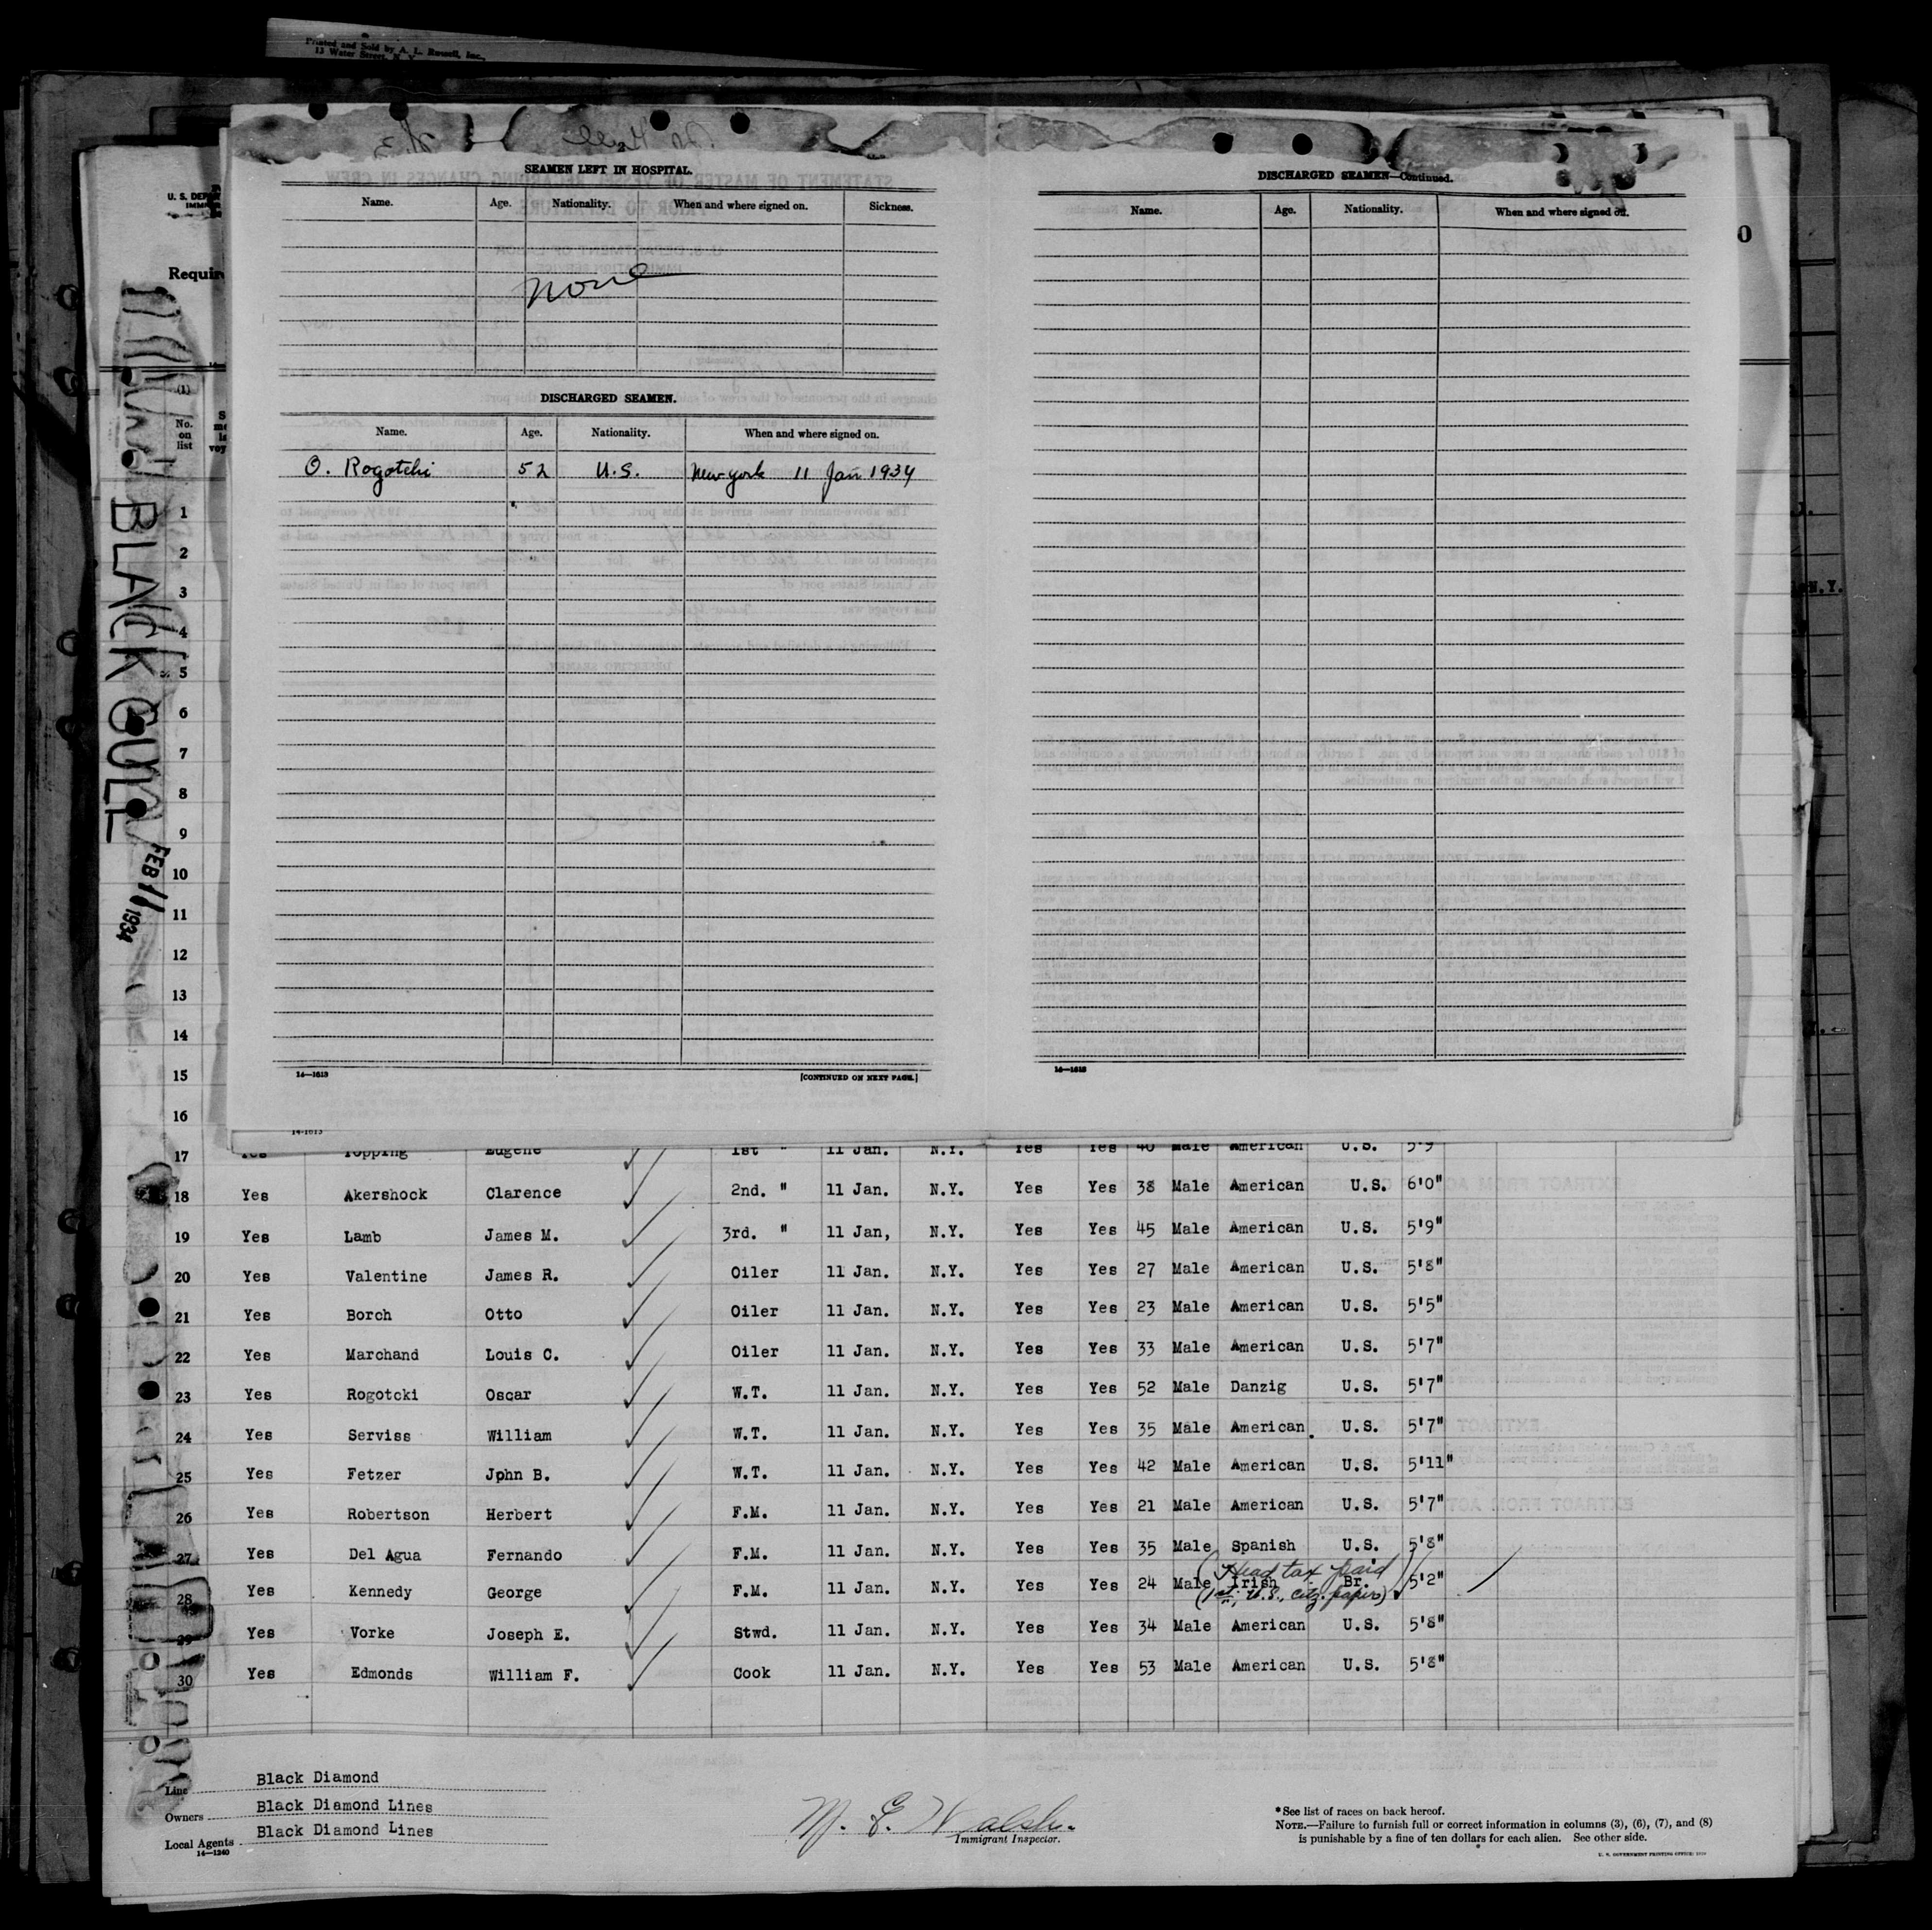 Printed and Sold by A. L. Russell, Inc.,
13 Water Street, N. Y.
SEAMEN LEFT IN HOSPITAL.
Name. Age. Nationality. When and where signed on. Sickness.
None
DISCHARGED SEAMEN.
Name. Age. Nationality. When and where signed on.
O. Rogotchi 52 U.S. New York 11 Jan 1934
14—1613 [CONTINUED ON NEXT PAGE.]
DISCHARGED SEAMEN—Continued.
Name. Age. Nationality. When and where signed on.
14—1613
U. S. DEP
Requir
(1)
No.
on
list
BLACK GULL
FEB 11 1934
1
2
3
4
5
6
7
8
9
10
11
12
13
14
15
16
14-1613
17 Yes Topping Eugene 1st " 11 Jan. N.Y. Yes Yes 40 Male American U.S. 5'9
18 Yes Akershock Clarence 2nd. " 11 Jan. N.Y. Yes Yes 38 Male American U.S. 6'0"
19 Yes Lamb James M. 3rd. " 11 Jan, N.Y. Yes Yes 45 Male American U.S. 5'9"
20 Yes Valentine James R. Oiler 11 Jan. N.Y. Yes Yes 27 Male American U.S. 5'8"
21 Yes Borch Otto Oiler 11 Jan. N.Y. Yes Yes 23 Male American U.S. 5'5"
22 Yes Marchand Louis C. Oiler 11 Jan. N.Y. Yes Yes 33 Male American U.S. 5'7"
23 Yes Rogotcki Oscar W.T. 11 Jan. N.Y. Yes Yes 52 Male Danzig U.S. 5'7"
24 Yes Serviss William W.T. 11 Jan. N.Y. Yes Yes 35 Male American U.S. 5'7"
25 Yes Fetzer Jphn B. W.T. 11 Jan. N.Y. Yes Yes 42 Male American U.S. 5'11"
26 Yes Robertson Herbert F.M. 11 Jan. N.Y. Yes Yes 21 Male American U.S. 5'7"
27 Yes Del Agua Fernando F.M. 11 Jan. N.Y. Yes Yes 35 Male Spanish U.S. 5'8"
(Head tax paid)
28 Yes Kennedy George F.M. 11 Jan. N.Y. Yes Yes 24 Male Irish Br. 5'2"
(1st U.S. citz. papers)
29 Yes Vorke Joseph E. Stwd. 11 Jan. N.Y. Yes Yes 34 Male American U.S. 5'8"
30 Yes Edmonds William F. Cook 11 Jan. N.Y. Yes Yes 53 Male American U.S. 5'8"
Line Black Diamond
Owners Black Diamond Lines
Local Agents Black Diamond Lines
14—1240
M. E. Walsh.
Immigrant Inspector.
*See list of races on back hereof.
NOTE.—Failure to furnish full or correct information in columns (3), (6), (7), and (8)
is punishable by a fine of ten dollars for each alien. See other side.
U. S. GOVERNMENT PRINTING OFFICE: